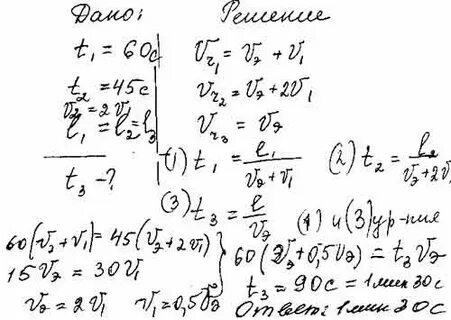 Дано:
t₁ = 60с
t₂ = 45с
v₂ = 2v₁
l₁ = l₂ = l₃
t₃ - ?
Решение
Vч₁ = Vэ + V₁
Vч₂ = Vэ + 2V₁
Vч₃ = Vэ
(1) t₁ = l₁ / (Vэ + V₁) (2) t₂ = l₂ / (Vэ + 2V₁
(3) t₃ = l / Vэ (1) и (3) ур-ния
60(Vэ + V₁) = 45(Vэ + 2V₁)
15Vэ = 30V₁
Vэ = 2V₁ V₁ = 0,5Vэ
60(Vэ + 0,5Vэ) = t₃Vэ
t₃ = 90с = 1мин 30с
Ответ: 1мин 30с